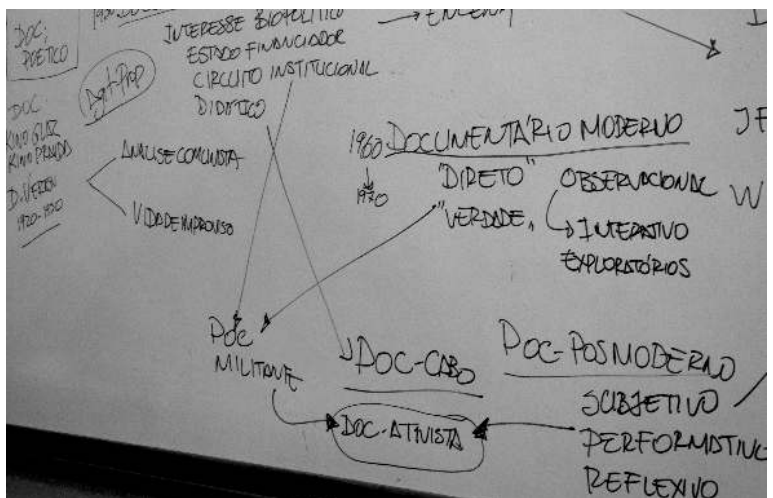 DOC:
POÉTICO
Agit-Prop
DOC
KINO GLAZ
KINO PRAVDA
D. VERTOV
1920-1930
ANÁLISE COMUNISTA
VIDA DE IMPROVISO
INTERESSE BIOPOLÍTICO
ESTADO FINANCIADOR
CIRCUITO INSTITUCIONAL
DIDÁTICO
1960
1970
DOCUMENTÁRIO MODERNO
"DIRETO"
"VERDADE"
OBSERVACIONAL
INTERATIVO
EXPLORATÓRIOS
W
DOC
MILITANTE
DOC-CABO
DOC-ATIVISTA
DOC-POSMODERNO
SUBJETIVO
PERFORMATIVO
REFLEXIVO